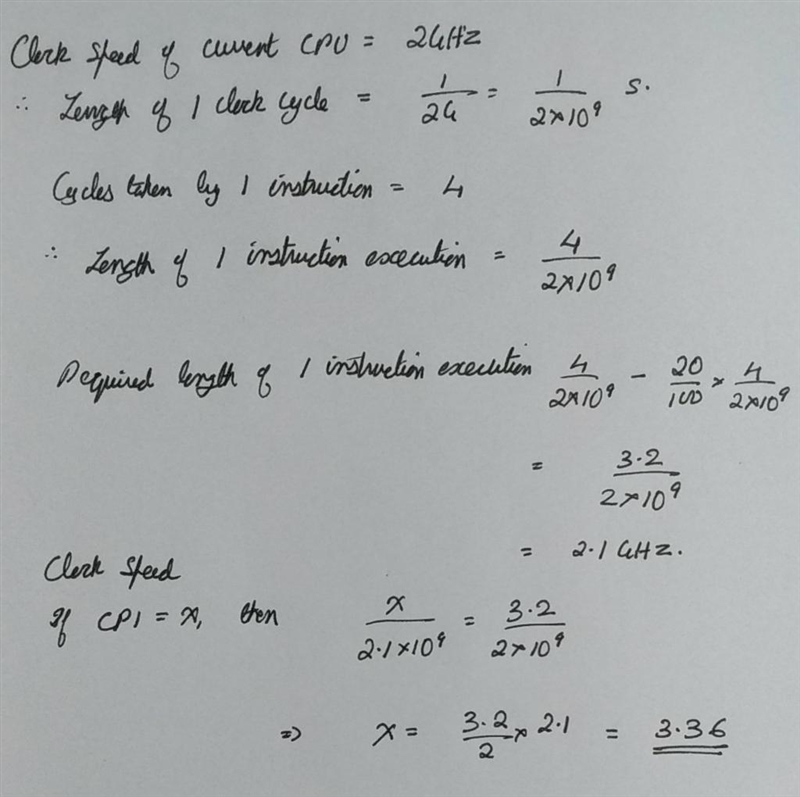 Clock Speed of current CPU = 2GHz
∴ Length of 1 clock cycle = 1/2G = 1/2×10⁹ s.
Cycles taken by 1 instruction = 4
∴ Length of 1 instruction execution = 4/2×10⁹
Required length of 1 instruction execution 4/2×10⁹ - 20/100 × 4/2×10⁹
= 3.2/2×10⁹
Clock Speed = 2.1 GHz.
If CPI = x, then x/2.1×10⁹ = 3.2/2×10⁹
⇒ x = 3.2/2 × 2.1 = 3.36